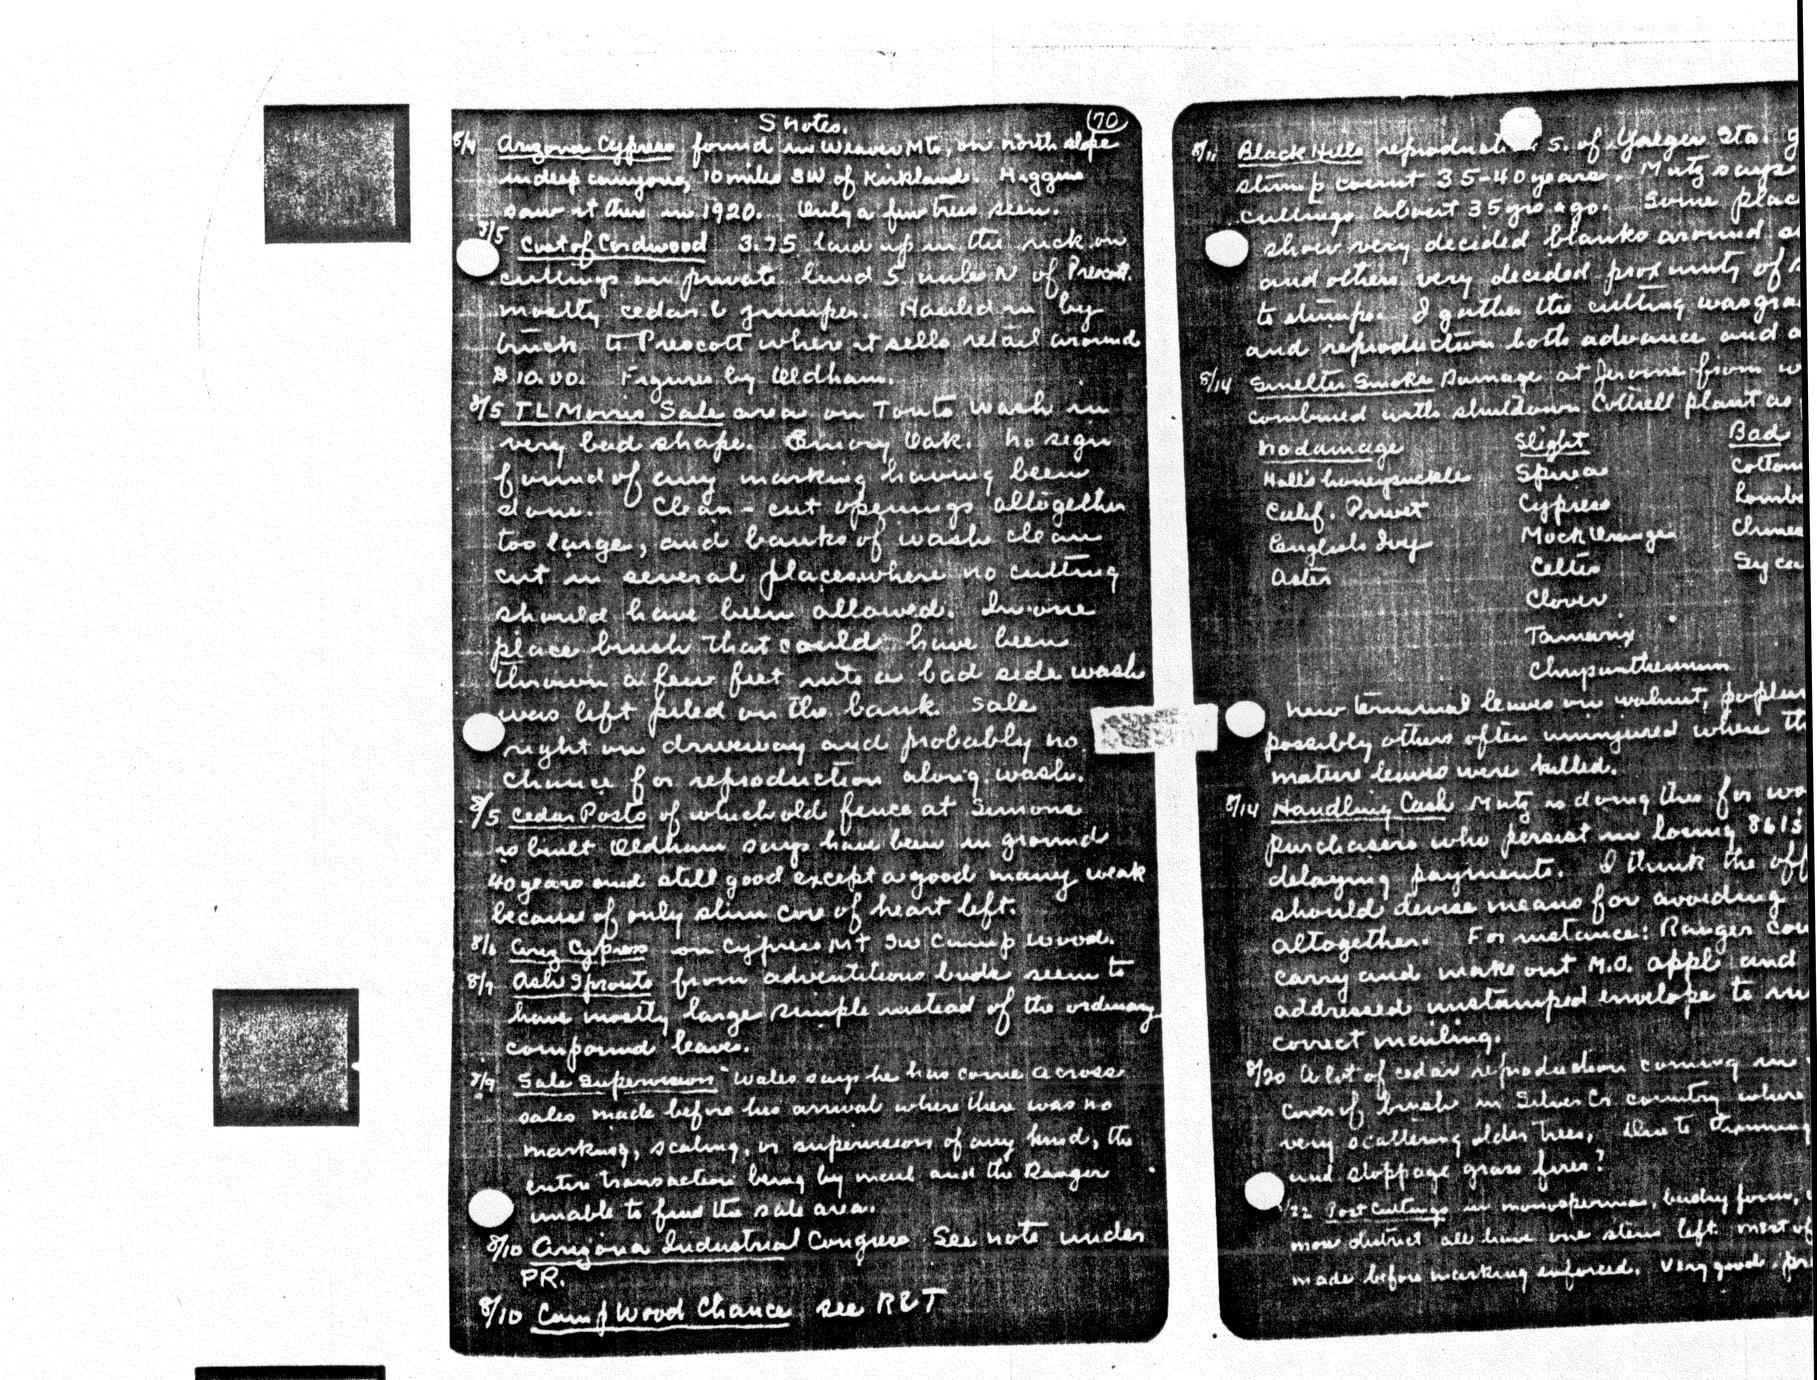 S notes.
70
8/4 Arizona Cypress found in Weaver Mts, on north slope
in deep canyons, 10 miles SW of Kirkland. Higgins
saw it there in 1920. Only a few trees seen.
8/5 Cost of Cordwood 3.75 laid up in the rick on
cuttings on private land 5 miles N of Prescott.
mostly cedar & juniper. Hauled in by
truck to Prescott where it sells retail around
$10.00. Figures by Oldham.
8/5 TL Morris Sale area on Tonto Wash in
very bad shape. Emory Oak. No sign
found of any marking having been
done. Clean-cut openings altogether
too large, and banks of wash clean
cut in several places where no cutting
should have been allowed. In one
place brush that could have been
thrown a few feet into a bad side wash
was left piled on the bank. Sale
right on driveway and probably no
chance for reproduction along wash.
8/5 Cedar Posts of which old fence at Simons
is built Oldham says have been in ground
40 years and still good except a good many weak
because of only slim core of heart left.
8/6 Ariz Cypress on Cypress Mt SW Camp Wood.
8/7 Ash Sprouts from adventitious buds seem to
have mostly large simple instead of the ordinary
compound leaves.
8/9 Sale Supervision Wales says he has come across
sales made before his arrival where there was no
marking, scaling, or supervision of any kind, the
entire transaction being by mail and the Ranger
unable to find the sale area.
8/10 Arizona Industrial Congress See note under
PR.
8/10 Camp Wood Chance see R&T
8/11 Black Hills S. of Yaeger Sta.
stump count 35-40 years. Mutz says
cuttings about 35 yrs ago. Some
show very decided blanks around
and others very decided proximity of
to stumps. I gather the cutting was
and reproduction both advance and
8/14 Smelter Smoke Damage at Jerome from
combined with shutdown Cottrell plant as
No damage Slight Bad
Hall's honeysuckle Spirea
Calif. Privet Cypress
English Ivy Mock Orange
Aster Celtis
Clover
Tamarix
Chrysanthemum
New terminal leaves on walnut,
possibly others often uninjured where
mature leaves were killed.
8/14 Handling Cash Mutz is doing this for
purchasers who persist in losing 861s
delaying payments. I think the
should devise means for avoiding
altogether. For instance: Ranger
carry and make out M.O. appl. and
addressed unstamped envelope to
correct mailing.
8/20 A lot of cedar reproduction coming in
cover of brush in Silver Cr. country where
very scattering older trees. Due to
and stoppage grass fires?
/22 Post Cuttings in monosperma, bushy form,
district all have one stem left. Most of
made before marking enforced. Very good.